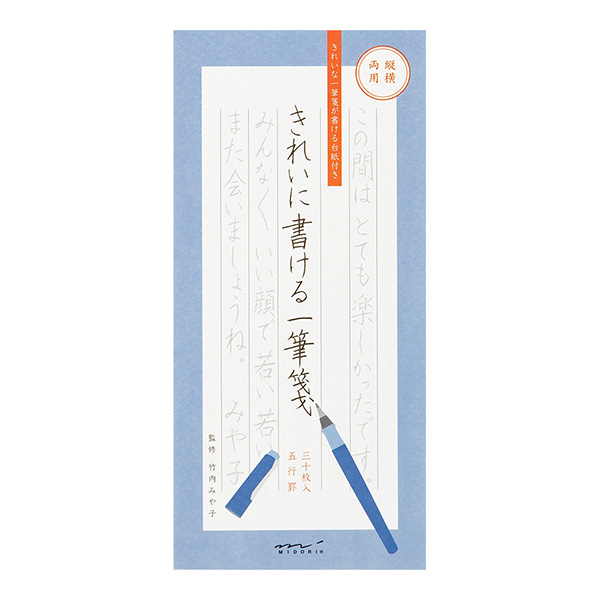 縦横
両用
きれいな一筆箋が書ける台紙付き
この間は とても楽しかったです。
きれいに書ける一筆箋
みんなく いい顔で若い若い
また会いましょうね。 みや子
三十枚入
五行罫
監修 竹内みや子
MIDORI